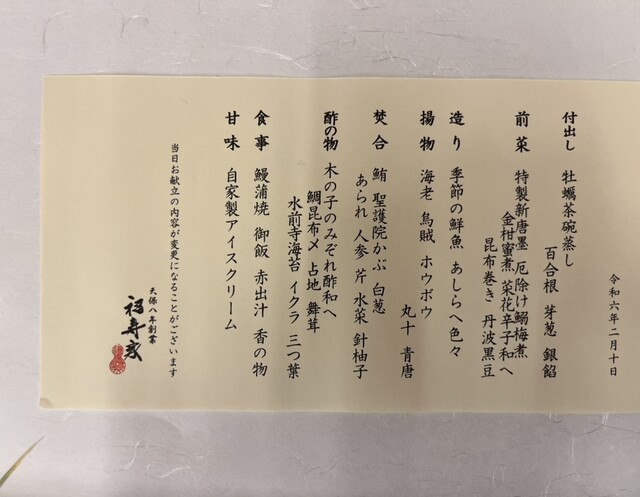 令和六年二月十日
付出し 牡蠣茶碗蒸し
百合根 芽葱 銀餡
前菜 特製新唐墨 厄除け鰯梅煮
金柑蜜煮 菜花辛子和へ
昆布巻き 丹波黒豆
造り 季節の鮮魚 あしらへ色々
揚物 海老 烏賊 ホウボウ
丸十 青唐
焚合 鮪 聖護院かぶ 白葱
あられ 人参 芹 水菜 針柚子
酢の物 木の子のみぞれ酢和へ
鯛昆布〆 占地 舞茸
水前寺海苔 イクラ 三つ葉
食事 鰻蒲焼 御飯 赤出汁 香の物
甘味 自家製アイスクリーム
当日お献立の内容が変更になることがございます
天保八年創業
福寿家